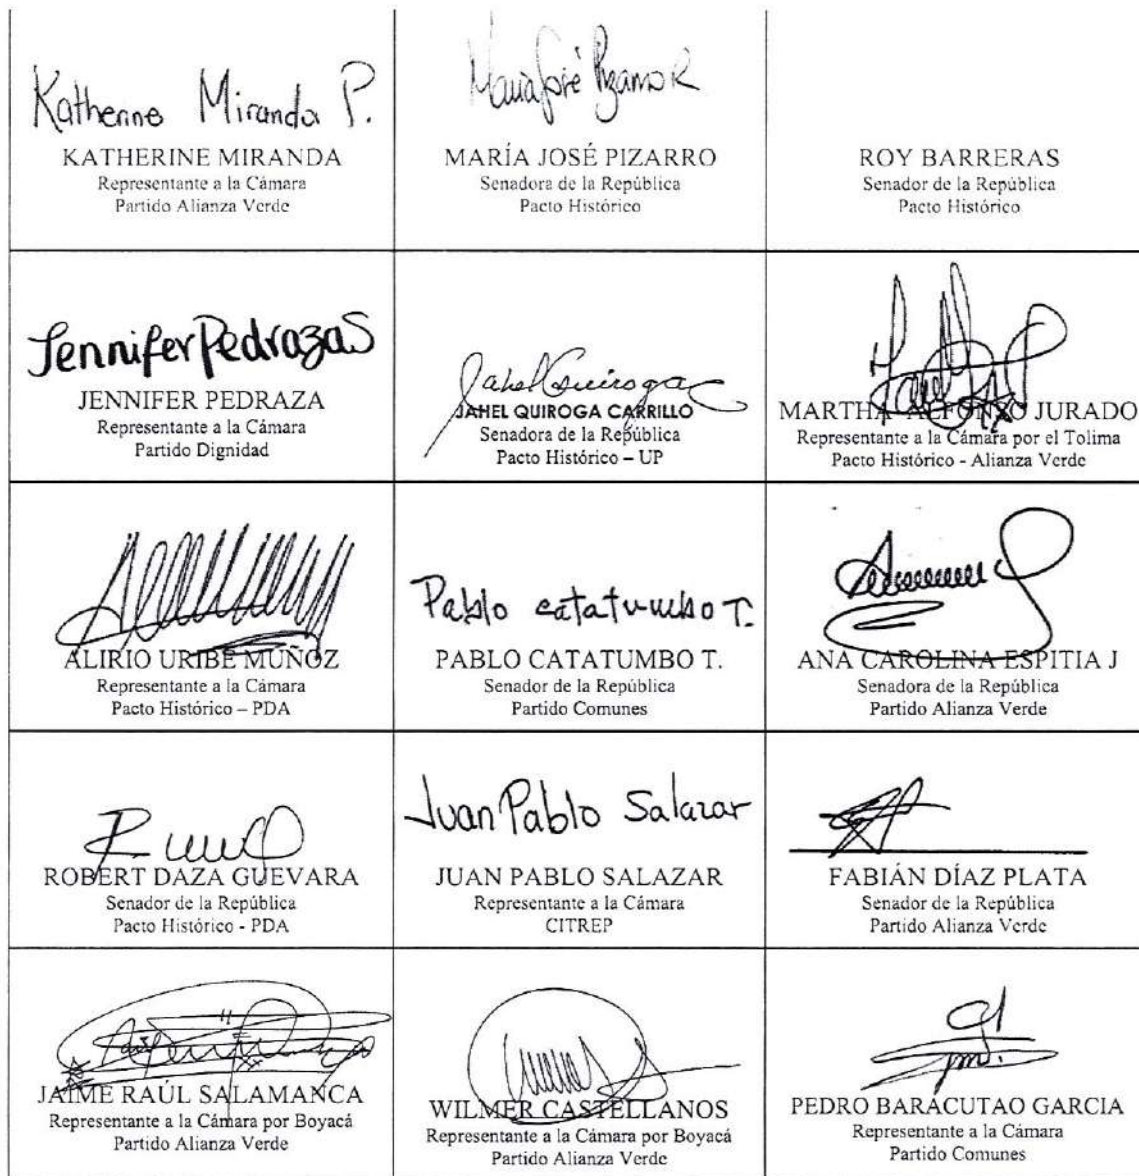 Katherine Miranda P.
KATHERINE MIRANDA
Representante a la Cámara
Partido Alianza Verde
María José Pizarro R
MARÍA JOSÉ PIZARRO
Senadora de la República
Pacto Histórico
ROY BARRERAS
Senador de la República
Pacto Histórico
Jennifer Pedraza S
JENNIFER PEDRAZA
Representante a la Cámara
Partido Dignidad
Jahel Quiroga C
JAHEL QUIROGA CARRILLO
Senadora de la República
Pacto Histórico – UP
MARTHA ALFONSO JURADO
Representante a la Cámara por el Tolima
Pacto Histórico - Alianza Verde
ALIRIO URIBE MUÑOZ
Representante a la Cámara
Pacto Histórico – PDA
Pablo catatumbo T.
PABLO CATATUMBO T.
Senador de la República
Partido Comunes
ANA CAROLINA ESPITIA J
Senadora de la República
Partido Alianza Verde
ROBERT DAZA GUEVARA
Senador de la República
Pacto Histórico - PDA
Juan Pablo Salazar
JUAN PABLO SALAZAR
Representante a la Cámara
CITREP
FABIÁN DÍAZ PLATA
Senador de la República
Partido Alianza Verde
JAIME RAÚL SALAMANCA
Representante a la Cámara por Boyacá
Partido Alianza Verde
WILMER CASTELLANOS
Representante a la Cámara por Boyacá
Partido Alianza Verde
PEDRO BARACUTAO GARCIA
Representante a la Cámara
Partido Comunes